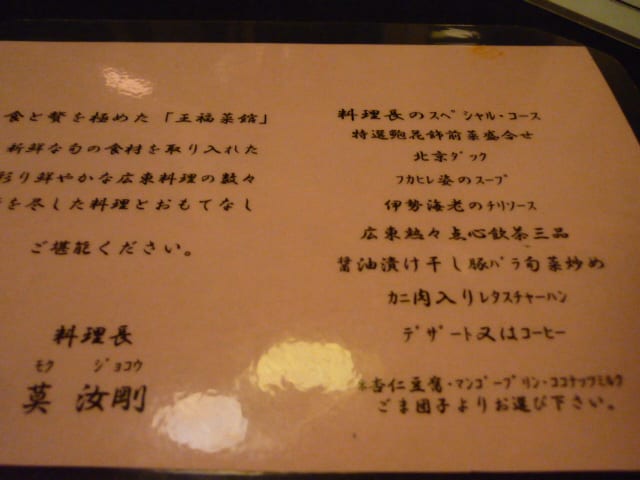 食と贅を極めた「王福菜館」
新鮮な旬の食材を取り入れた
彩り鮮やかな広東料理の数々
を尽した料理とおもてなし
ご堪能ください。
料理長
モク ジョコウ
莫 汝剛
料理長のスペシャル・コース
特選鮑花飾前菜盛合せ
北京ダック
フカヒレ姿のスープ
伊勢海老のチリソース
広東熱々点心飲茶三品
醤油漬け干し豚バラ旬菜炒め
カニ肉入りレタスチャーハン
デザート又はコーヒー
※杏仁豆腐・マンゴープリン・ココナッツミルク
ごま団子よりお選び下さい。